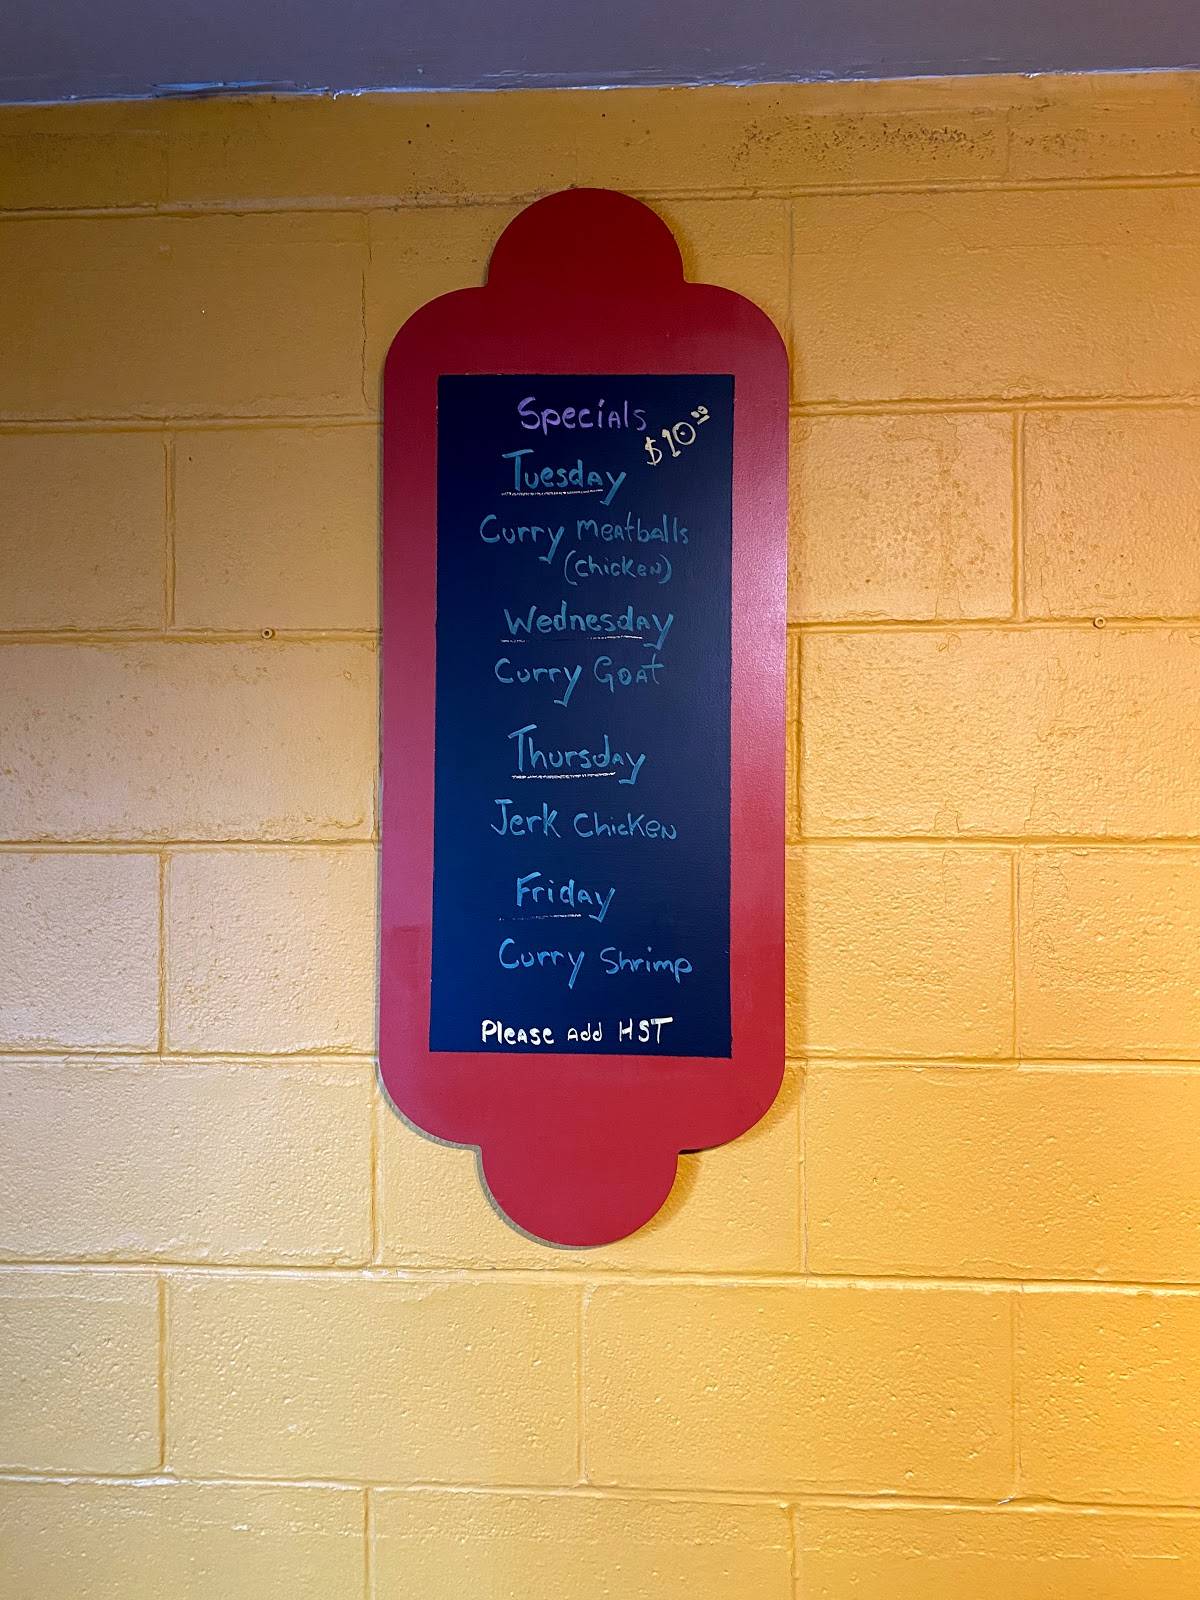 Specials
$10.00
Tuesday
Curry meatballs
(chicken)
Wednesday
Curry Goat
Thursday
Jerk Chicken
Friday
Curry Shrimp
Please add HST